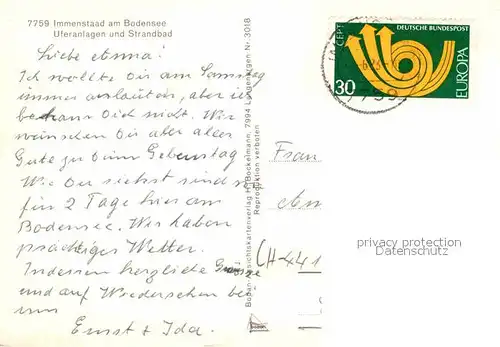 7759 Immenstaad am Bodensee
Uferanlagen und Strandbad
Liebe Anna!
Ich wollte Dir am Samstag
immer anläuten, aber ich
bekam Dich nicht. Wir
wünschen Dir aber alles
Gute zu Deim Geburtstag
Wie Du siehst sind wir
für 2 Tage hier am
Bodensee. Wir haben
prächtiges Wetter.
Indessen herzliche Grüsse
und auf Wiedersehen bei
uns
Ernst + Ida.
Bodan-Ansichtskartenverlag H. Bockelmann, 7994 Langenargen Nr. 3018
Reproduktion verboten
bodan
CEPT
DEUTSCHE BUNDESPOST
EUROPA
30
7759
Frau
CH-441
privacy protection
Datenschutz